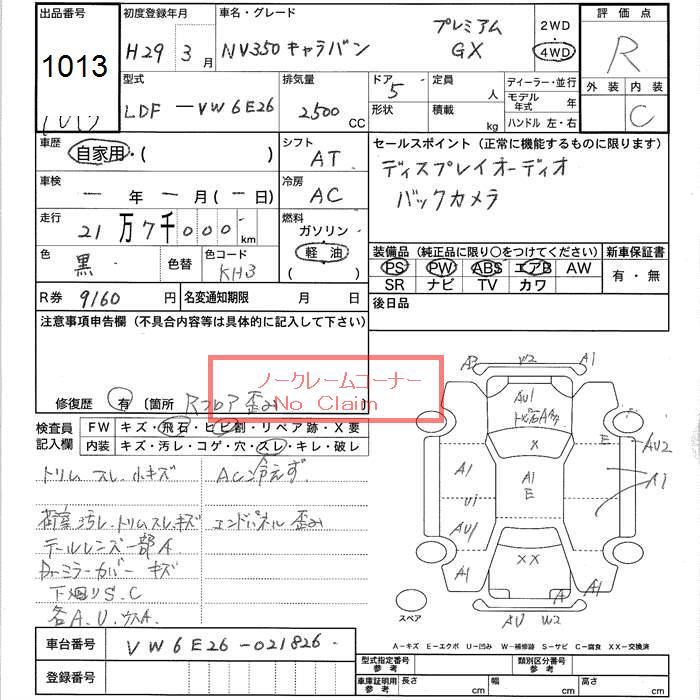 出品番号 初度登録年月 車名・グレード 評価点
1013 H29年 3月 NV350キャラバン プレミアム GX 2WD 4WD R
型式 排気量 ドア 5 定員 人 ディーラー・並行 外装 内装
LDF-VW6E26 2500CC 形状 積載 kg モデル年式 年 C
ハンドル 左・右
車歴 自家用・( ) シフト AT セールスポイント(正常に機能するものに限ります)
ディスプレイオーディオ
車検 ー年ー月(ー日) 冷房 AC バックカメラ
走行 21万7千000km 燃料 ガソリン 軽油 ( )
装備品(純正品に限り○をつけてください) 新車保証書
色 黒 色替 色コード KH3 PS PW ABS エアB AW 有・無
SR ナビ TV カワ
R券 9160円 名変通知期限 月 日 後日品
注意事項申告欄(不具合内容等は具体的に記入して下さい)
ノークレームコーナー
No Claim
修復歴 有 〔箇所 Rフロア歪み 〕
検査員記入欄 FW キズ・飛石・ヒビ割・リペア跡・X要
内装 キズ・汚レ・コゲ・穴・スレ・キレ・破レ
トリム スレ.小キズ AC冷えず
荷室汚レ.トリムスレキズ エンドパネル歪み
テールレンズ一部A
Drミラーカバー キズ
下廻りS.C
各A.U.
A3 W2 A1
AU1
X E AU2
A1 A1 E A1
U1
AU1
XX
A1 A A1
スペア AU W2
A-キズ E-エクボ U-凹み W-補修跡 S-サビ C-腐食 XX-交換済
車台番号 VW6E26-021826
登録番号
型式指定番号 参考 類別区分番号 参考
車庫証明用 参考 長さ cm 幅 cm 高さ cm